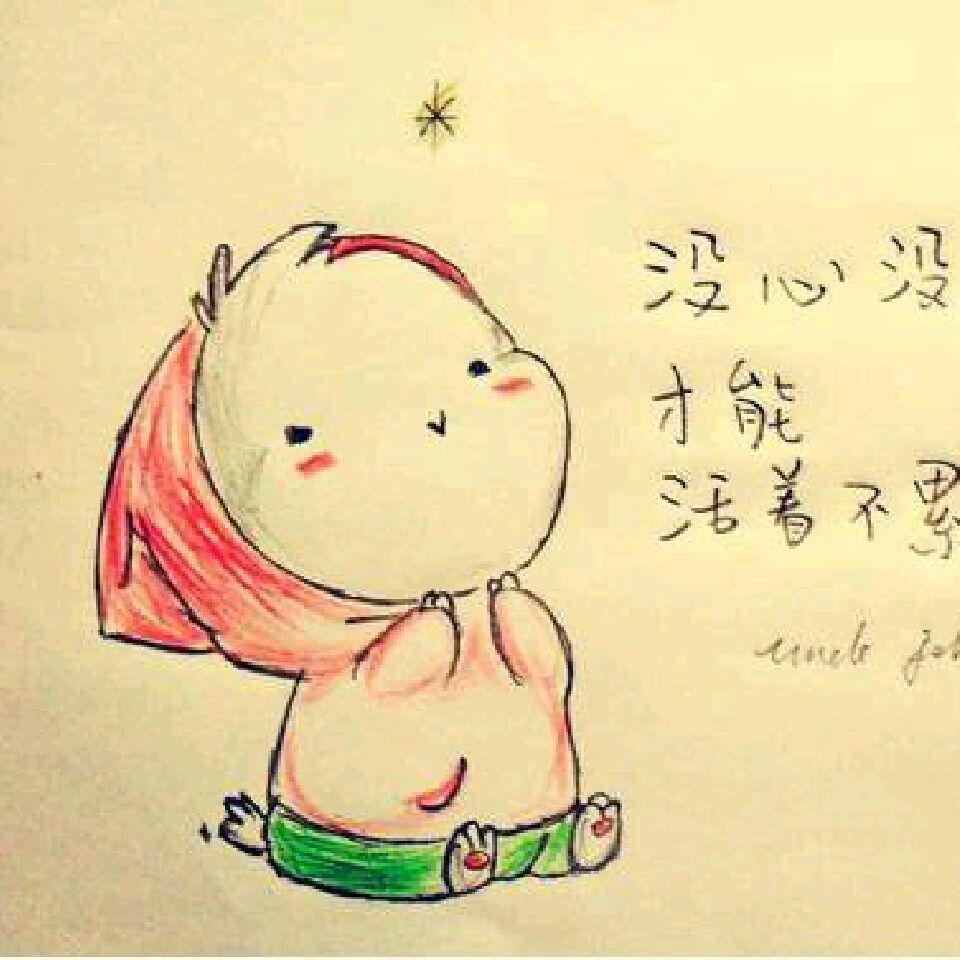 没心没
才能
活着不累
uncle